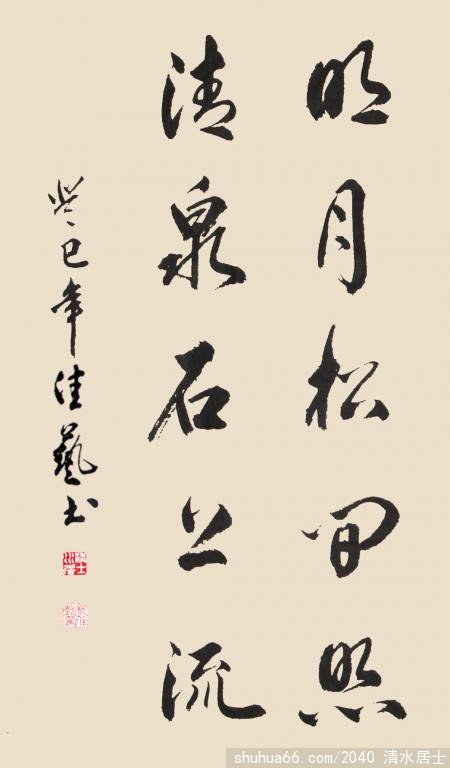 明月松间照
清泉石上流
癸巳年佳艺书
shuhua66.com/2040 清水居士